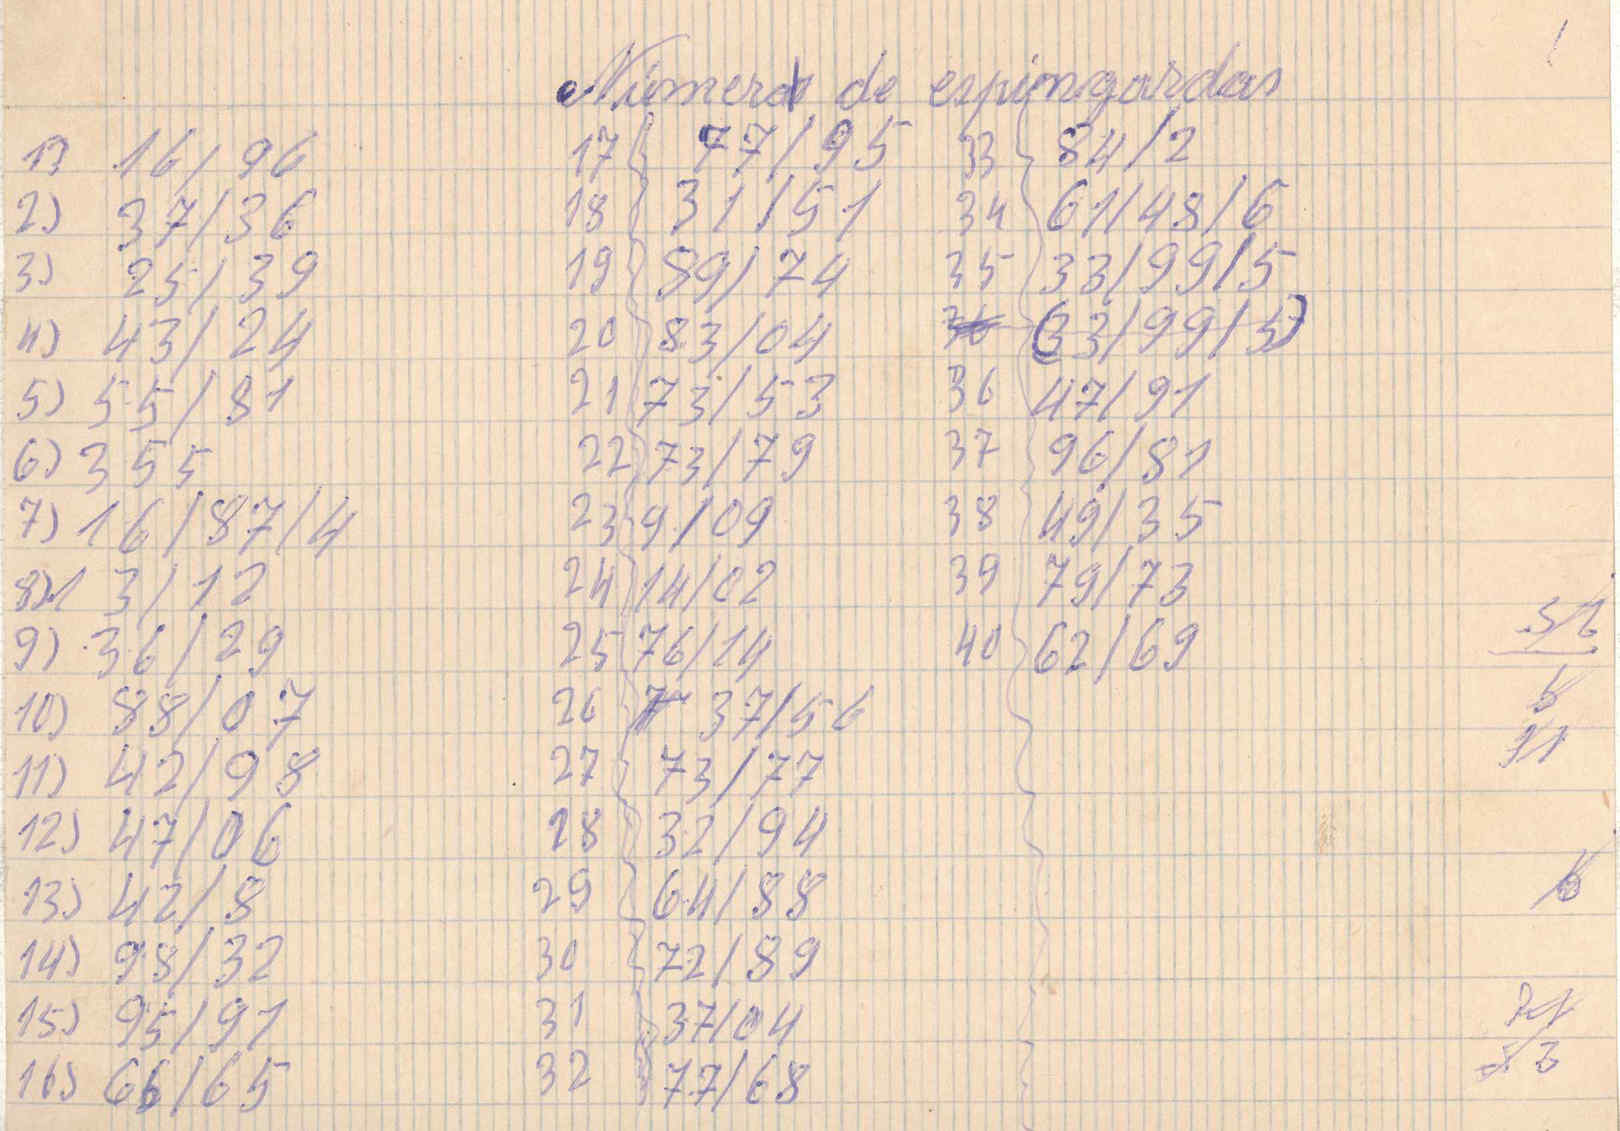 Número de espingardas
1) 16/96
2) 37/36
3) 25/39
4) 43/24
5) 55/81
6) 355
7) 16/87/4
8) 13/12
9) 36/29
10) 88/07
11) 42/98
12) 47/06
13) 42/8
14) 98/32
15) 95/91
16) 66/65
17 77/95
18 31/51
19 89/74
20 83/04
21 73/53
22 73/79
23 9/09
24 14/02
25 76/14
26 37/56
27 73/77
28 32/94
29 64/88
30 72/89
31 37/04
32 77/68
33 84/2
34 61/48/6
35 33/99/5
(33/99/5)
36 47/91
37 96/81
38 49/35
39 79/73
40 62/69